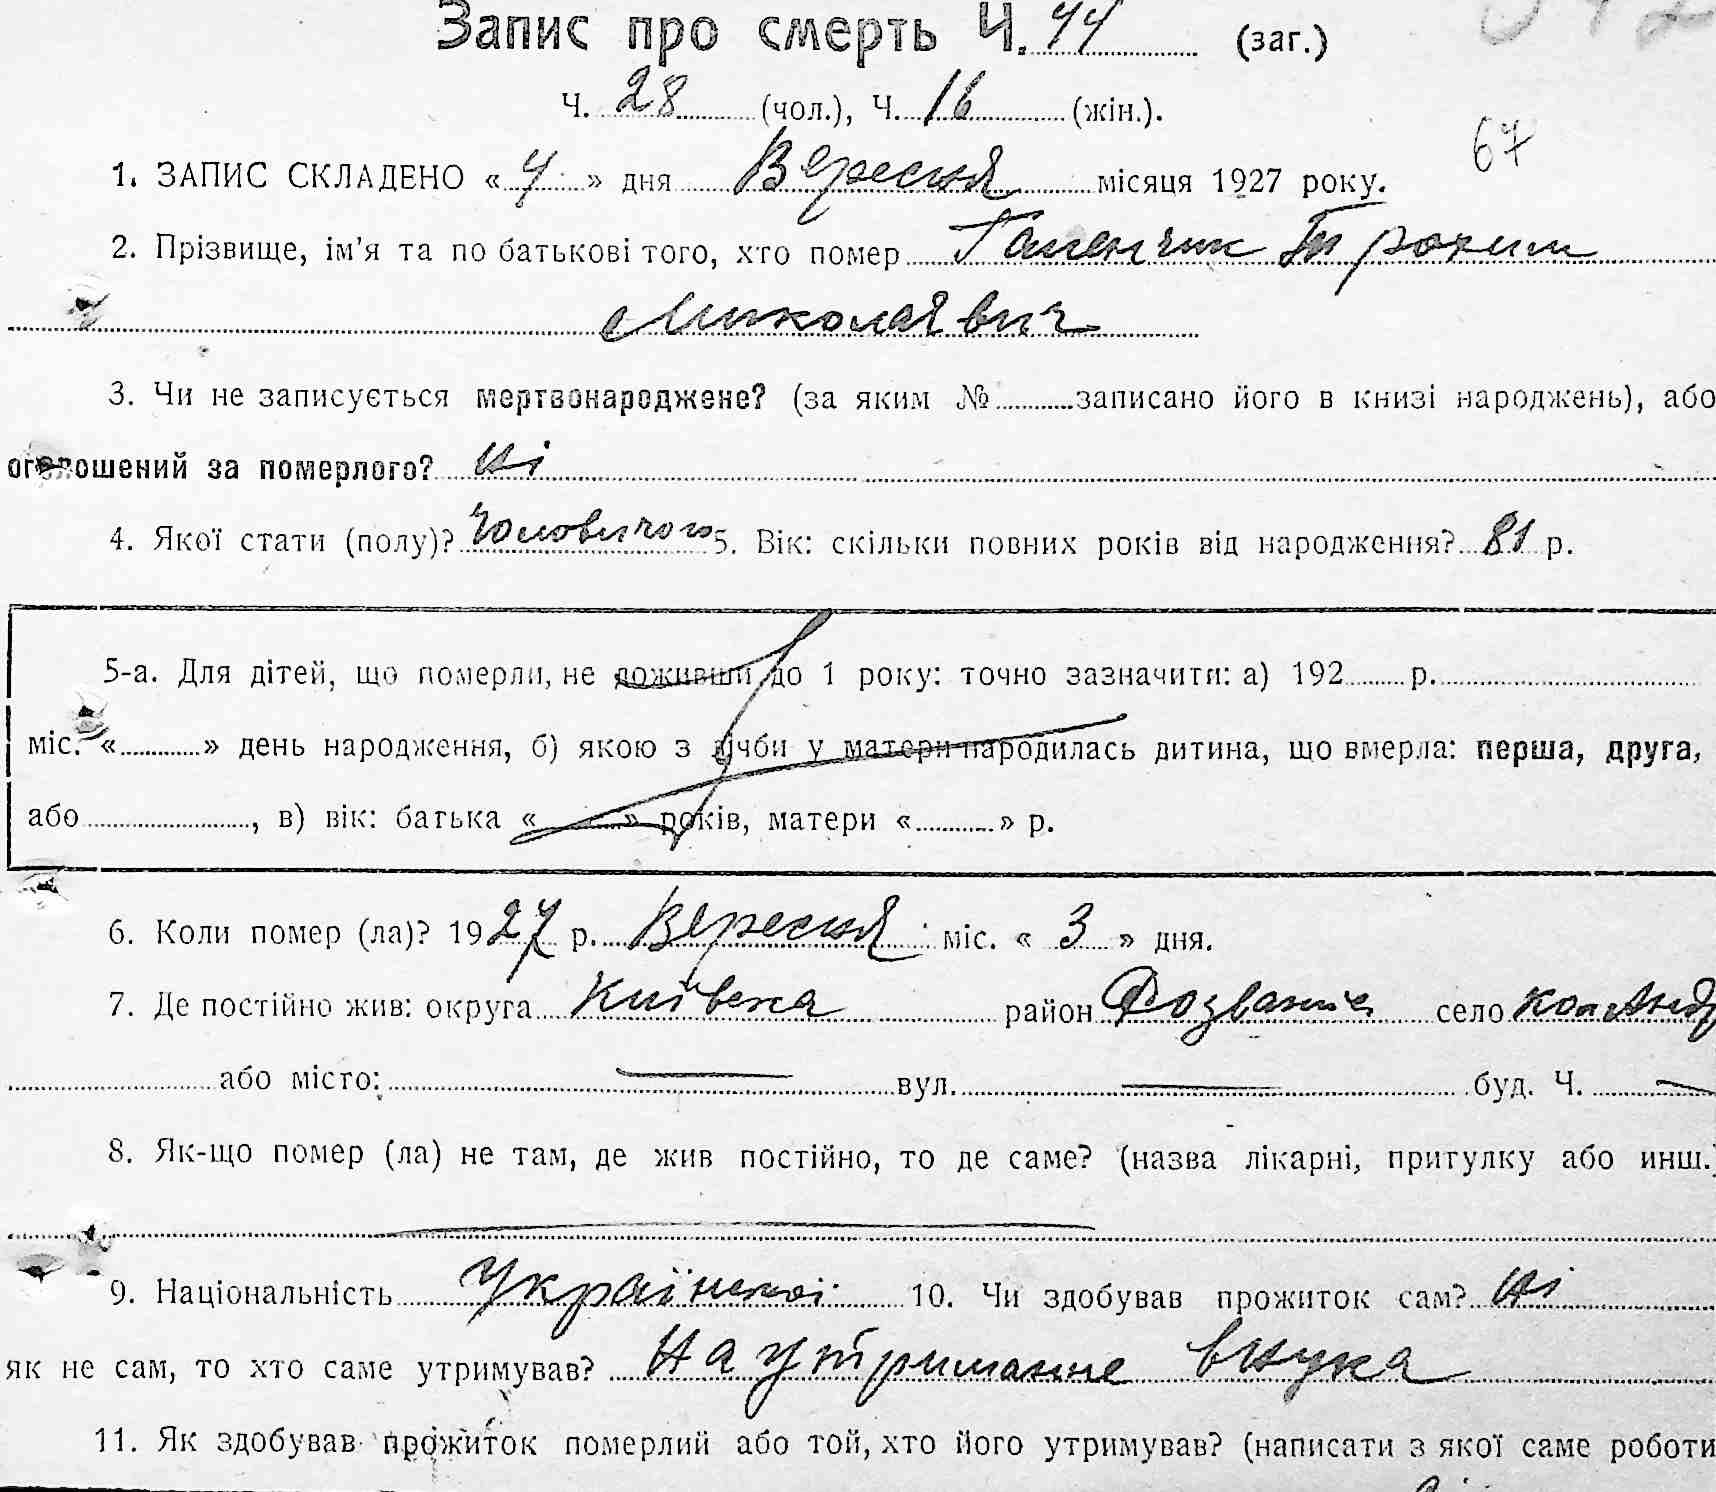 Запис про смерть Ч. 44 (заг.)
Ч. 28 (чол.), Ч. 16 (жін.).
67
1. ЗАПИС СКЛАДЕНО « 4 » дня Вересня місяця 1927 року.
2. Прізвище, ім'я та по батькові того, хто помер Трохим
Миколаявич
3. Чи не записується мертвонароджене? (за яким № записано його в книзі народжень), або
оголошений за померлого? ні
4. Якої стати (полу)? Чоловичого 5. Вік: скільки повних років від народження? 81 р.
5-а. Для дітей, що померли, не доживши до 1 року: точно зазначити: а) 192 р.
міс. « » день народження, б) якою з лічби у матери народилась дитина, що вмерла: перша, друга,
або , в) вік: батька « » років, матери « » р.
6. Коли помер (ла)? 1927 р. Вересня міс. « 3 » дня.
7. Де постійно жив: округа Київска район село
або місто: — вул. — буд. Ч. —
8. Як-що помер (ла) не там, де жив постійно, то де саме? (назва лікарні, притулку або инш.)
9. Національність Української 10. Чи здобував прожиток сам? ні
як не сам, то хто саме утримував? На утриманне внука
11. Як здобував прожиток померлий або той, хто його утримував? (написати з якої саме роботи